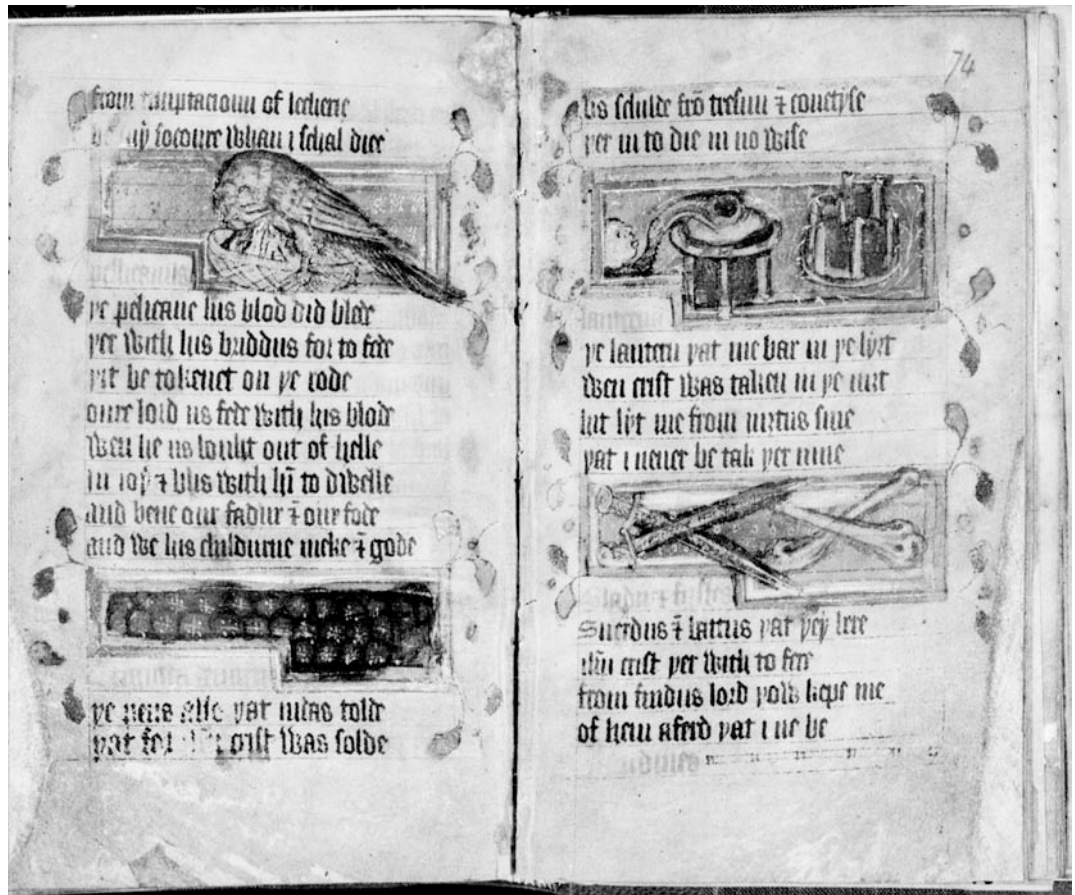 from tamptacioun of lecherie
be my socoure whan i schal die
þe pelicane his blod did blede
þer with his briddus for to fede
þit be tokenet on þe rode
oure lord us fede with his blode
wen he us bouht out of helle
in ioy & blis with hī to dwelle
and bene our fadur & our fode
and we his childurne meke & gode
þe pens þat iudas tolde
þat crist was solde
74
us schilde frō tresun & couetyse
þer in to die in no wise
þe lantern þat me bar in þe lyȝt
wen crist was taken in þe niȝt
hit lyȝt me from sine
þat i neuer be tak þer inne
Swerdus & battus þat þey bere
ihū crist þer with to fere
from findus lord þow kepe me
of hem aferd þat i ne be